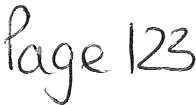 Page 123